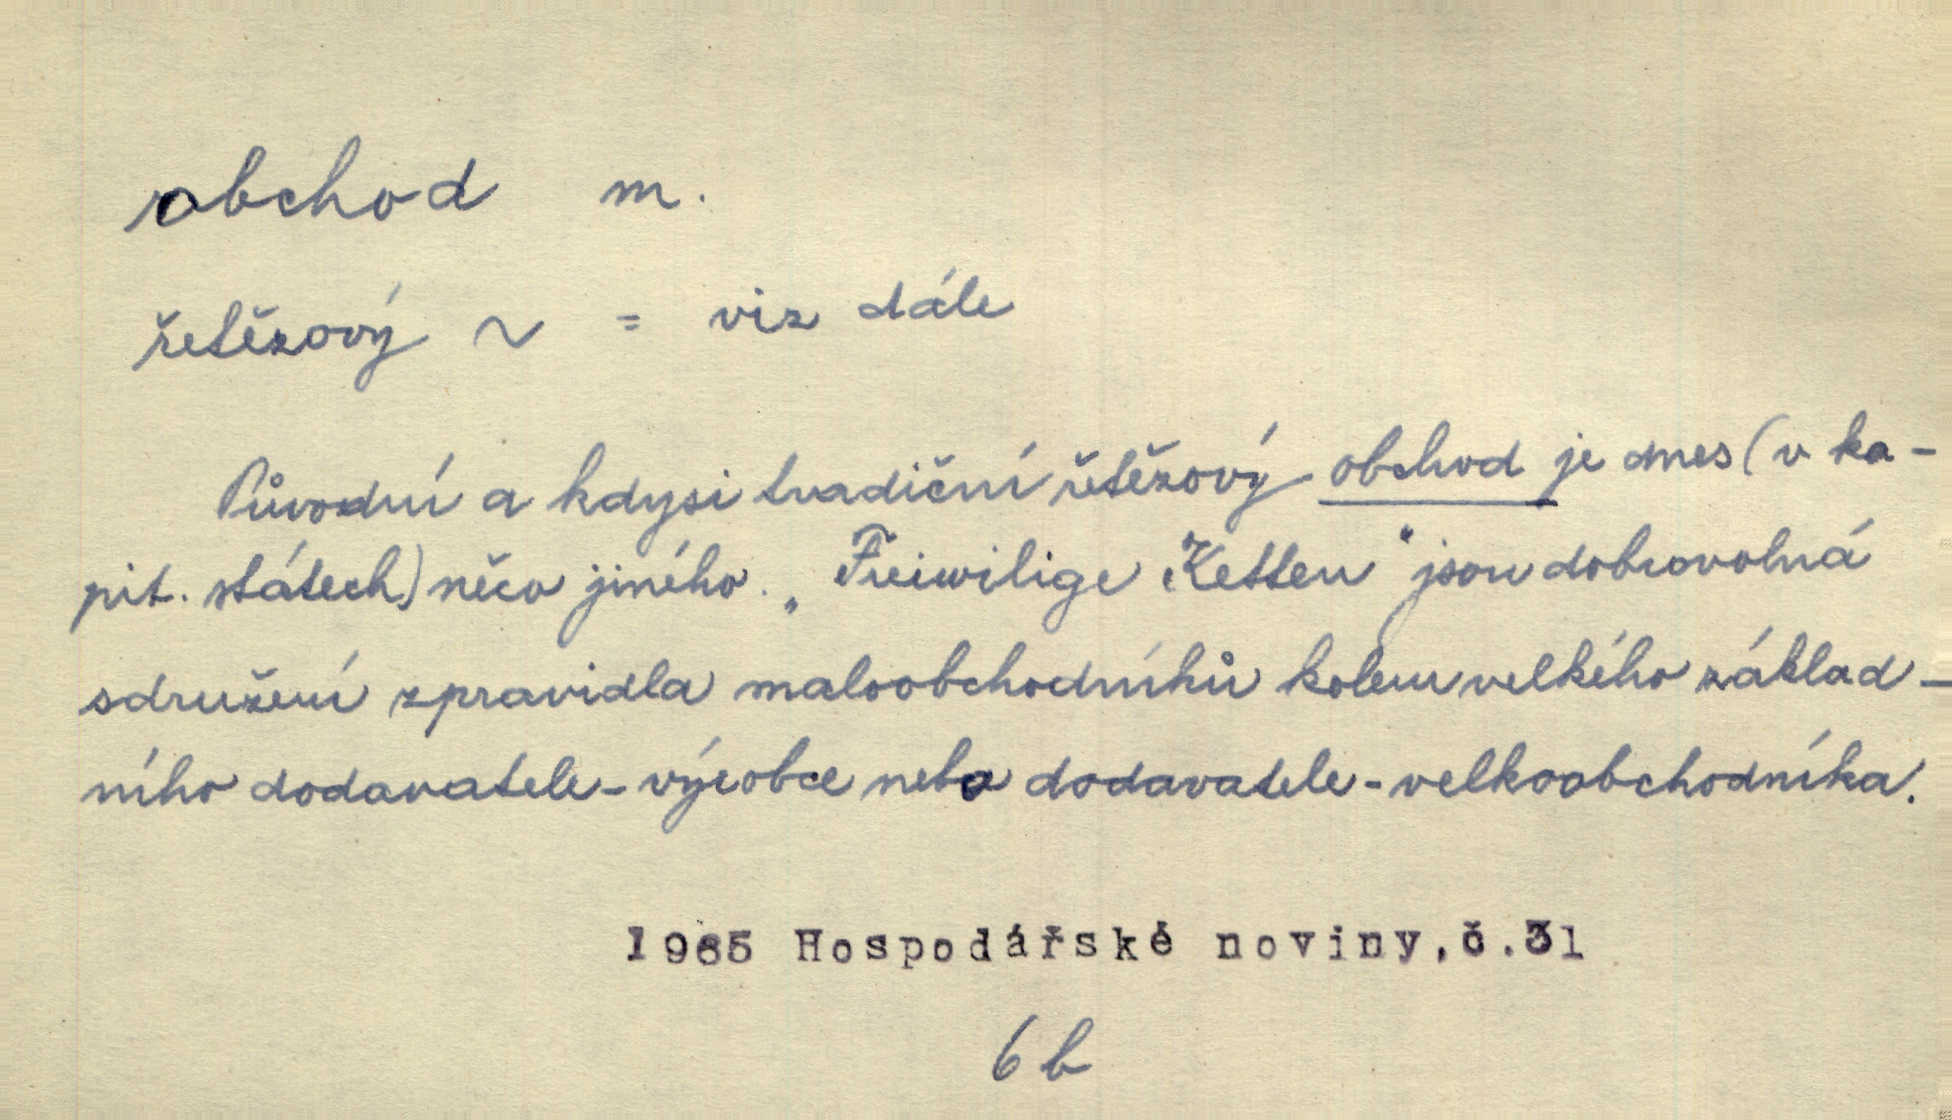 obchod m.
řetězový ~ = viz dále
Původní a kdysi tradiční řetězový obchod je dnes (v ka-
pit. státech) něco jiného. „Freiwilige Ketten“ jsou dobrovolná
sdružení zpravidla maloobchodníků kolem velkého základ-
ního dodavatele - výrobce nebo dodavatele - velkoobchodníka.
1965 Hospodářské noviny, č. 31
6b